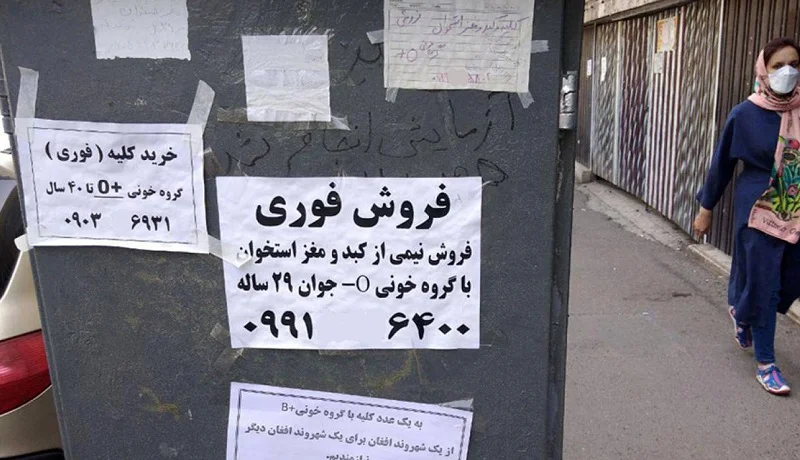 کلیه کبد و مغز استخوان فروشی
O+
آزمایش انجام شده
خرید کلیه ( فوری )
گروه خونی +O تا ۴۰ سال
۰۹۰۳ ۶۹۳۱
فروش فوری
فروش نیمی از کبد و مغز استخوان
با گروه خونی O- جوان ۲۹ ساله
۰۹۹۱ ۶۴۰۰
به یک عدد کلیه با گروه خونی+B
از یک شهروند افغان برای یک شهروند افغان دیگر
نیازمندیم.